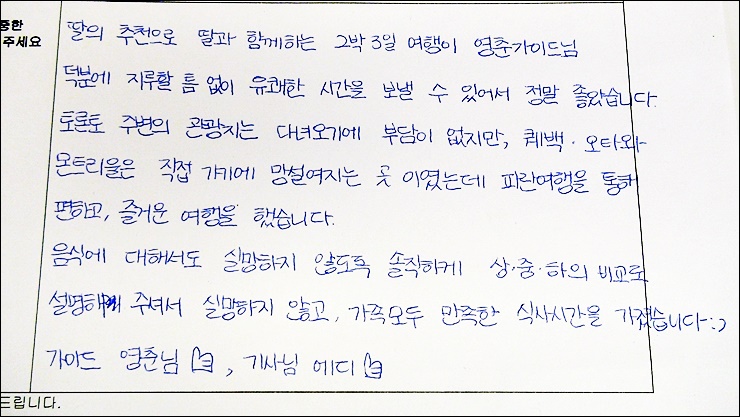 중한
주세요
딸의 추천으로 딸과 함께하는 2박 3일 여행이 영춘가이드님
덕분에 지루할 틈 없이 유쾌한 시간을 보낼 수 있어서 정말 좋았습니다.
토론토 주변의 관광지는 다녀오기에 부담이 없지만, 퀘백·오타와·
몬트리올은 직접 가기에 망설여지는 곳 이였는데 파란여행을 통해
편하고, 즐거운 여행을 했습니다.
음식에 대해서도 실망하지 않도록 솔직하게 상·중·하의 비교로
설명해 주셔서 실망하지 않고, 가족모두 만족한 식사시간을 가졌습니다-:)
가이드 영춘님 , 기사님 에디
드립니다.